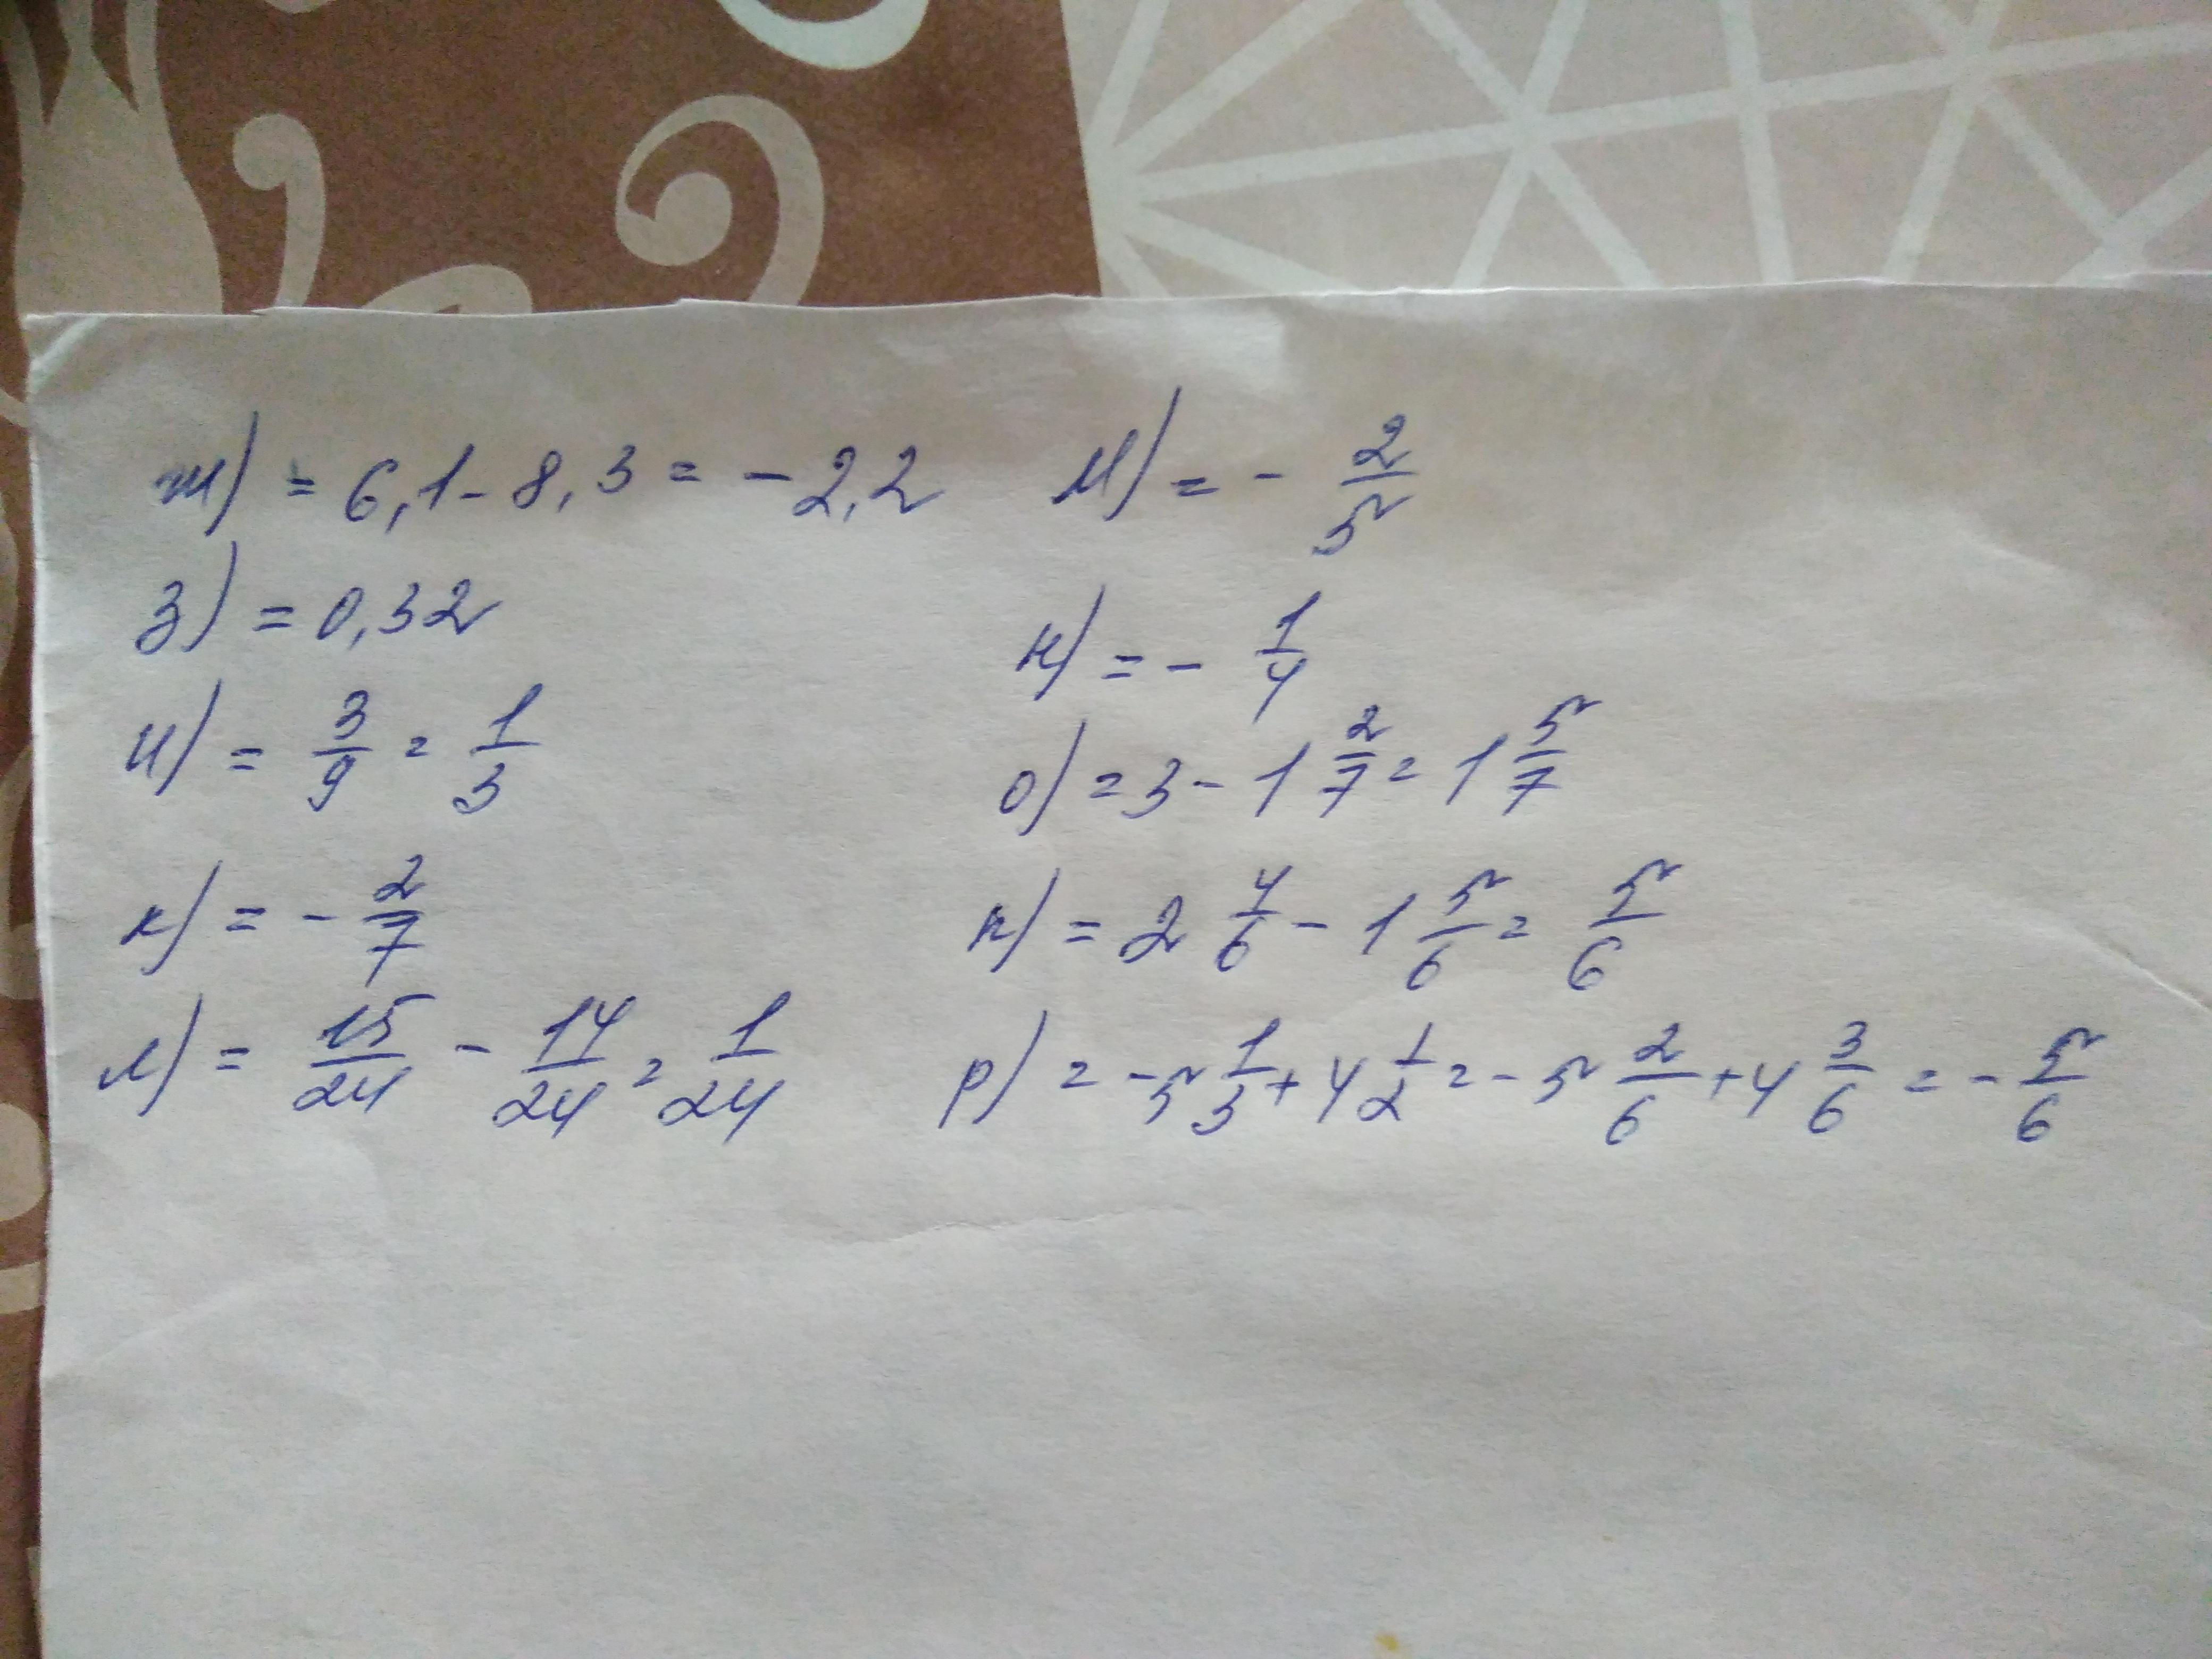 ж) = 6,1 - 8,3 = -2,2
з) = 0,32
и) = 3/9 = 1/3
к) = - 2/7
л) = 15/24 - 14/24 = 1/24
м) = - 2/5
н) = - 1/4
о) = 3 - 1 2/7 = 1 5/7
п) = 2 4/6 - 1 5/6 = 5/6
р) = -5 1/3 + 4 1/2 = -5 2/6 + 4 3/6 = - 5/6